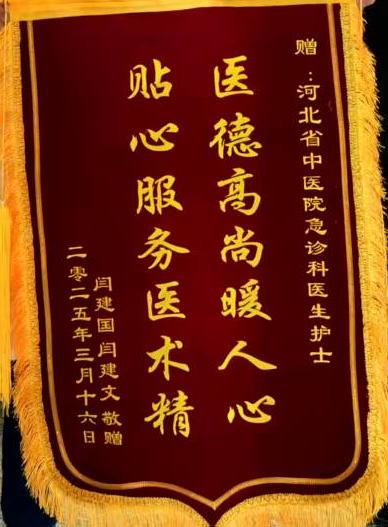 赠:河北省中医院急诊科医生护士
医德高尚暖人心
贴心服务医术精
闫建国 闫建文 敬赠
二零二五年三月十六日